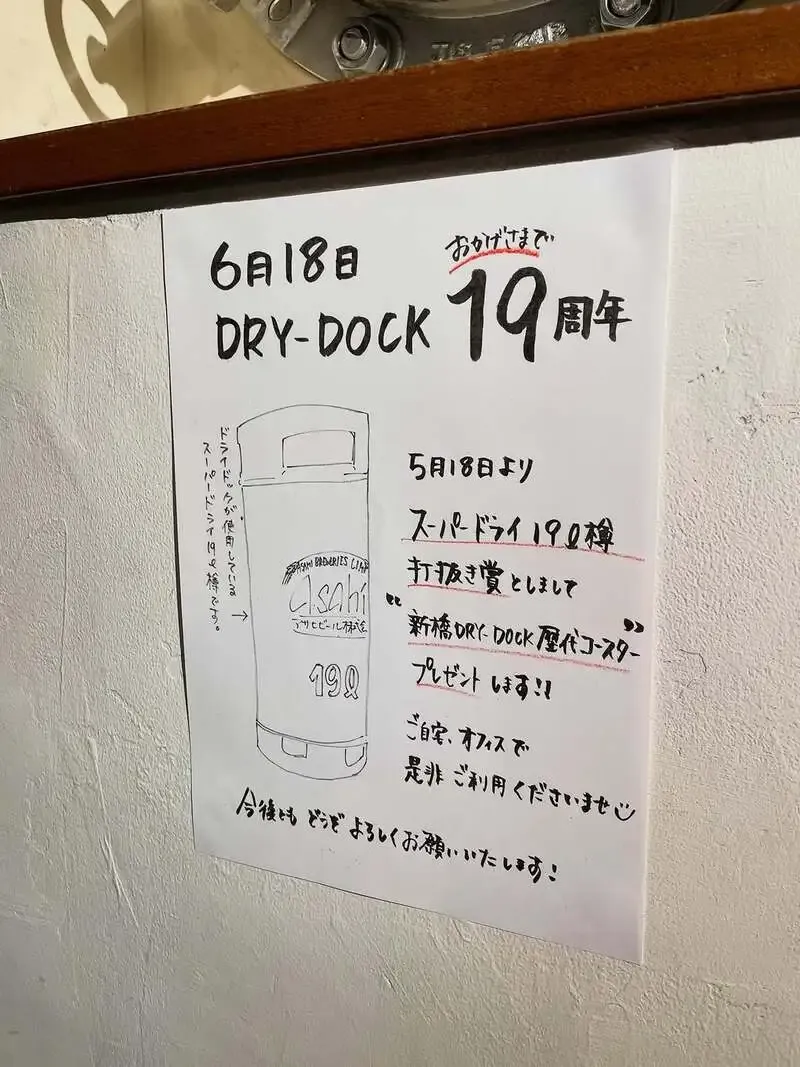 6月18日
おかげさまで
DRY-DOCK 19周年
ドライドックが使用している
スーパードライ19ℓ樽です。
→
5月18日より
スーパードライ19ℓ樽
打抜き賞としまして
"新橋DRY-DOCK歴代コースター"
プレゼントします!!
ご自宅、オフィスで
是非ご利用くださいませ
asahi
アサヒビール株式会
19ℓ
今後ともどうぞよろしくお願いいたします!